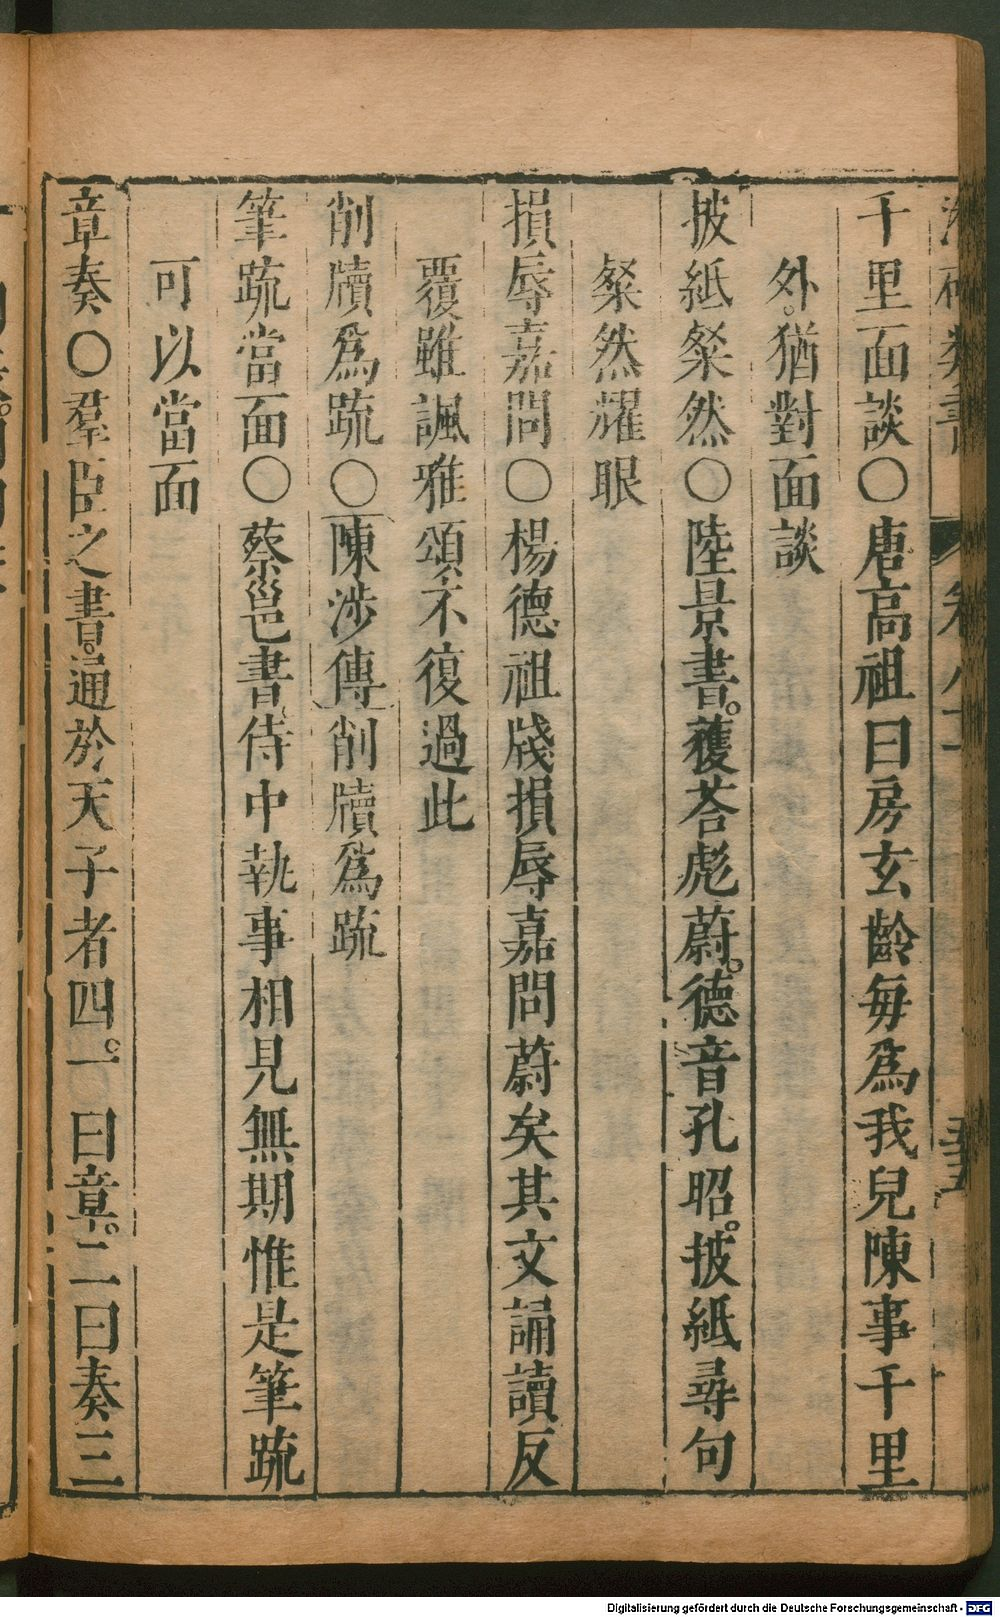 千里面談〇唐高祖曰房玄齡每爲我兒陳事千里
外。猶對面談
披紙粲然〇陸景書。蒦荅彪蔚。德音孔昭。披紙尋句
粲然耀眼
損辱嘉問〇楊德祖牋損辱嘉問蔚矣其文誦讀反
覆雖諷雅頌不復過此
削牘爲䟽〇陳涉傳削牘爲䟽
筆䟽當面〇蔡邕書侍中執事相見無期惟是筆䟽
可以當面
章奏〇羣臣之書。通於天子者四。一曰章。二曰奏三
Digitalisierung gefördert durch die Deutsche Forschungsgemeinschaft - DFG